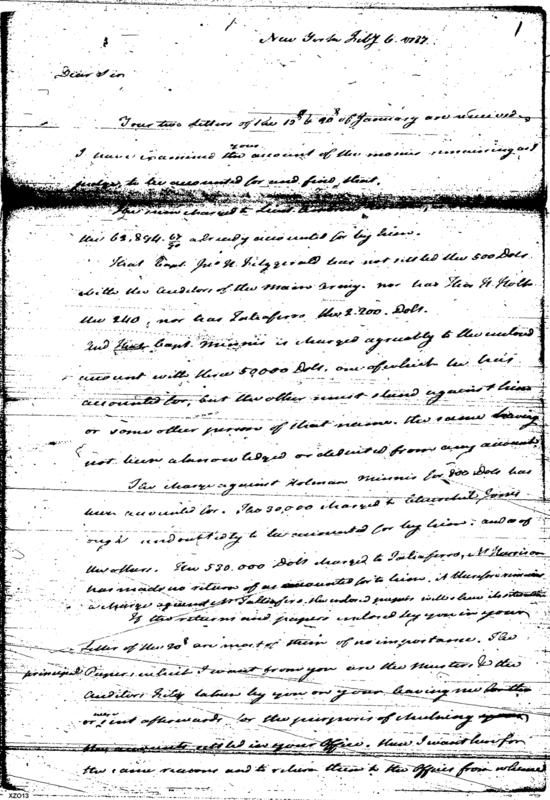 1
New York Feby 6. 1787.
Dear Sir
Your two Letters of the 13th & 20th of January are received.
I have examined the your account of the monies remaining as I
judge, to be accounted for and find, that.
The sum charged to Lieut
the 62,894. 67/90 already accounted for by him.
That Capt. Jno. H. Fitzgerald has not settled the 500 Dolls
with the Auditors of the main Army. nor has Thos H
the 240, nor has Taliaferro the 2.200. Dolls.
And Capt. Minnis is charged agreeably to the enclosed
account with these 50000 Dolls, one of which he has
accounted for, but the other must stand against him
or some other person of that name. the same having
not been acknowledged or deducted from any account.
The charge against Holman Minnis for 800 Dolls has
been accounted for. The 30,000 charged to Churchill Jones
ough undoubtedly to be accounted for by him: and so of
the others. The 530.000 Dolls charged to Taliaferro, Mr Harrison
has made no return of as accounted for to him. it therefore remains
a charge against Mr Taliaferro. the enclosed papers
If the returns and papers enclosed by you in your
Letter of the 20th are most of them of no importance. The
principal Papers, which I want from you are the Musters & the
Auditors taken by you on your leaving me for the
or were sent afterwards for the purposes of checking
the accounts settled in your Office. these I want here for
the same reasons and to return them to the Offices from whence
XZO13